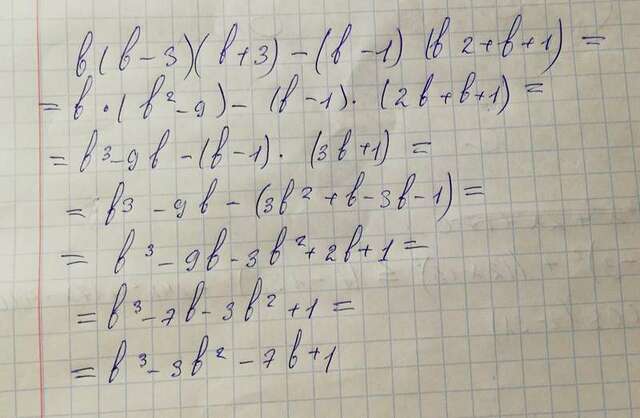 b(b-3)(b+3)-(b-1)(b2+b+1)=
=b·(b²-9)-(b-1)·(2b+b+1)=
=b³-9b-(b-1)·(3b+1)=
=b³-9b-(3b²+b-3b-1)=
=b³-9b-3b²+2b+1=
=b³-7b-3b²+1=
=b³-3b²-7b+1